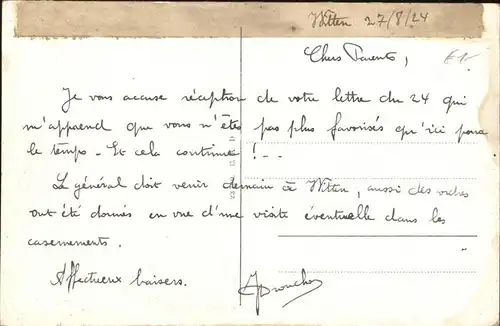 Witten 27/8/24
Chers Parents,
Je vous accuse réception de votre lettre du 24 qui
m'apprend que vous n'êtes pas plus favorisés qu'ici pour
le temps - Et cela continue ! --
Le général doit venir demain à Witten, aussi des ordres
ont été donnés en vue d'une visite éventuelle dans les
casernements.
Affectueux baisers.